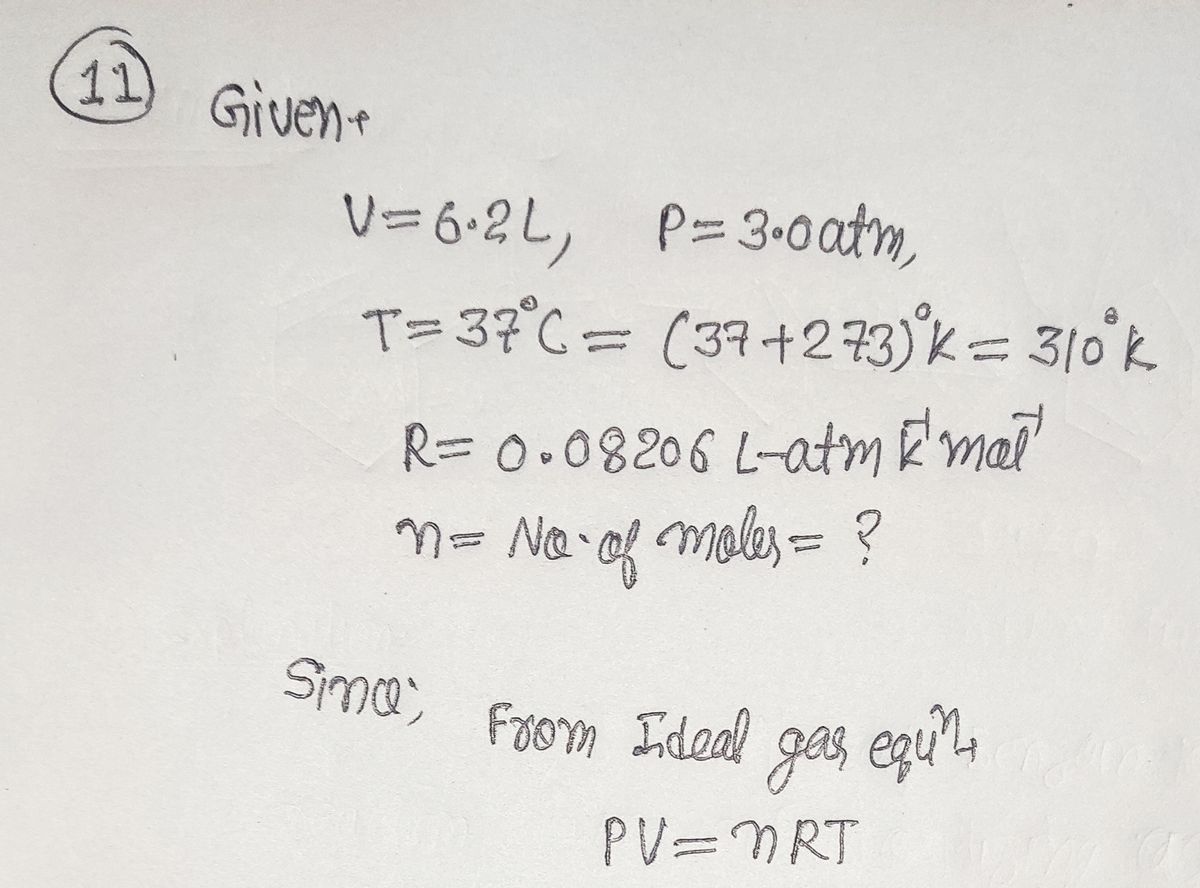 11
Given→
V=6.2L, P=3.0atm,
T=37°C=(37+273)°K=310°K
R=0.08206 L-atm K⁻¹ mol⁻¹
n= No. of moles = ?
Since;
From Ideal gas equⁿ→
PV=nRT